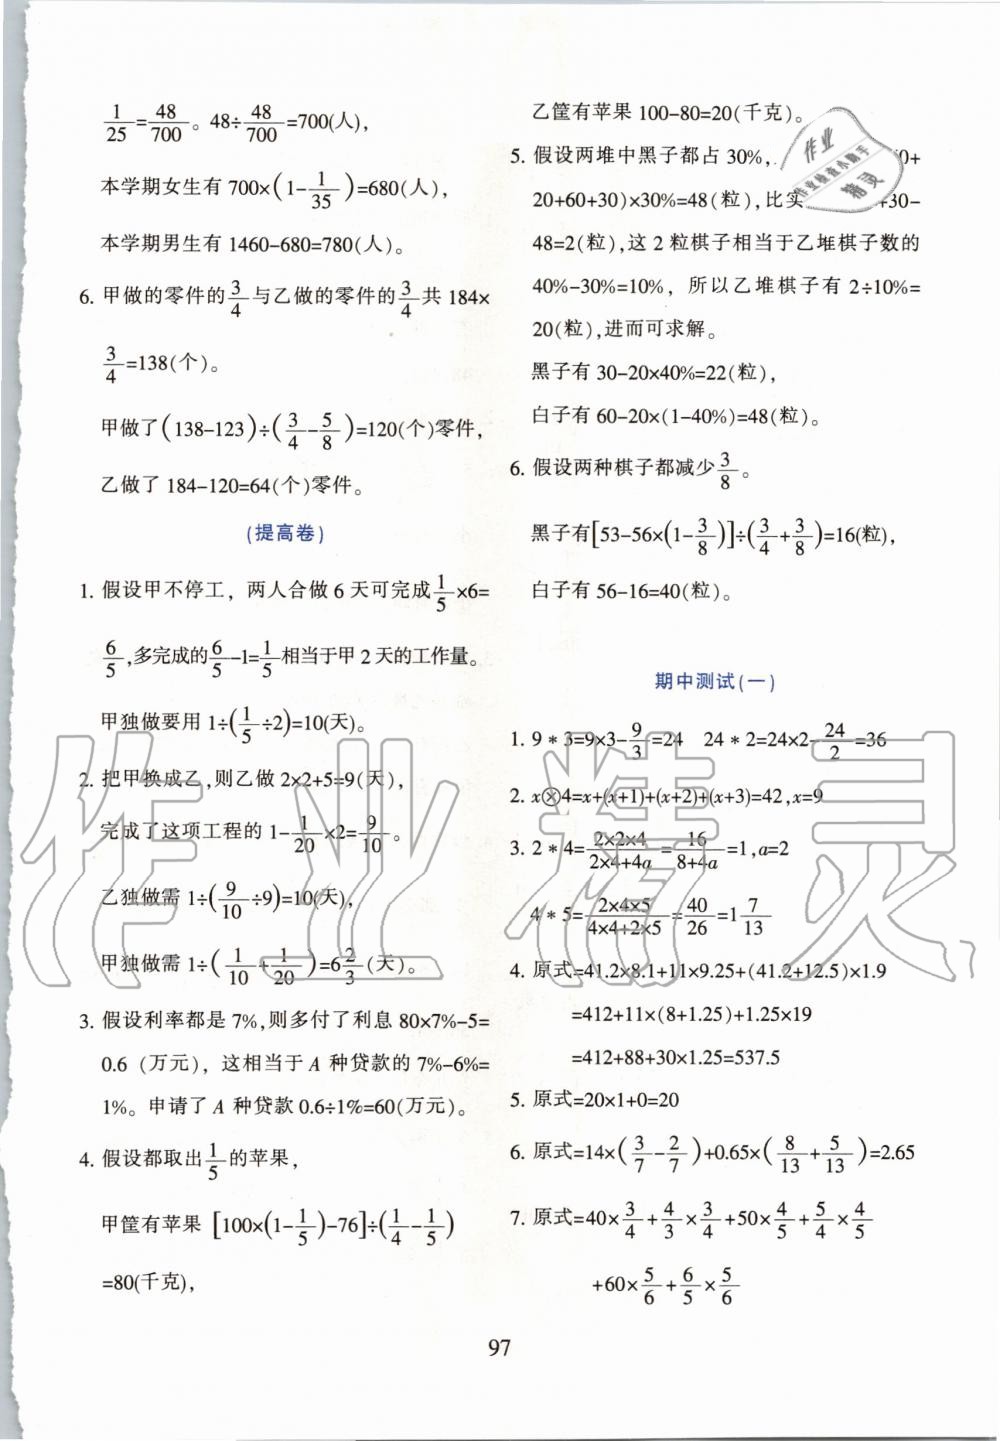 1/25=48/700。48÷48/700=700(人),
本学期女生有 700×(1-1/35)=680(人),
本学期男生有 1460-680=780(人)。
6. 甲做的零件的3/4与乙做的零件的3/4共 184×
3/4=138(个)。
甲做了(138-123)÷(3/4-5/8)=120(个)零件,
乙做了 184-120=64(个)零件。
(提高卷)
1. 假设甲不停工，两人合做 6 天可完成1/5×6=
6/5,多完成的6/5-1=1/5相当于甲 2 天的工作量。
甲独做要用 1÷(1/5÷2)=10(天)。
2. 把甲换成乙,则乙做 2×2+5=9(天),
完成了这项工程的 1-1/20×2=9/10。
乙独做需 1÷(9/10÷9)=10(天),
甲独做需 1÷(1/10+1/20)=6 2/3(天)。
3. 假设利率都是 7%,则多付了利息 80×7%-5=
0.6 (万元)，这相当于 A 种贷款的 7%-6%=
1%。申请了 A 种贷款 0.6÷1%=60(万元)。
4. 假设都取出1/5的苹果,
甲筐有苹果 [100×(1-1/5)-76]÷(1/4-1/5)
=80(千克),
乙筐有苹果 100-80=20(千克)。
5. 假设两堆中黑子都占 30%,
20+60+30)×30%=48(粒),比实 +30-
48=2(粒),这 2 粒棋子相当于乙堆棋子数的
40%-30%=10%，所以乙堆棋子有 2÷10%=
20(粒),进而可求解。
黑子有 30-20×40%=22(粒),
白子有 60-20×(1-40%)=48(粒)。
6. 假设两种棋子都减少3/8。
黑子有[53-56×(1-3/8)]÷(3/4+3/8)=16(粒),
白子有 56-16=40(粒)。
期中测试(一)
1. 9＊3=9×3-9/3=24 24＊2=24×2-24/2=36
2. x⊗4=x+(x+1)+(x+2)+(x+3)=42,x=9
3. 2＊4=2×2×4/2×4+4a=16/8+4a=1,a=2
4＊5=2×4×5/4×4+2×5=40/26=1 7/13
4. 原式=41.2×8.1+11×9.25+(41.2+12.5)×1.9
=412+11×(8+1.25)+1.25×19
=412+88+30×1.25=537.5
5. 原式=20×1+0=20
6. 原式=14×(3/7-2/7)+0.65×(8/13+5/13)=2.65
7. 原式=40×3/4+4/3×3/4+50×4/5+5/4×4/5
+60×5/6+6/5×5/6
97
作业精灵
作业
作业检查小助手
精灵